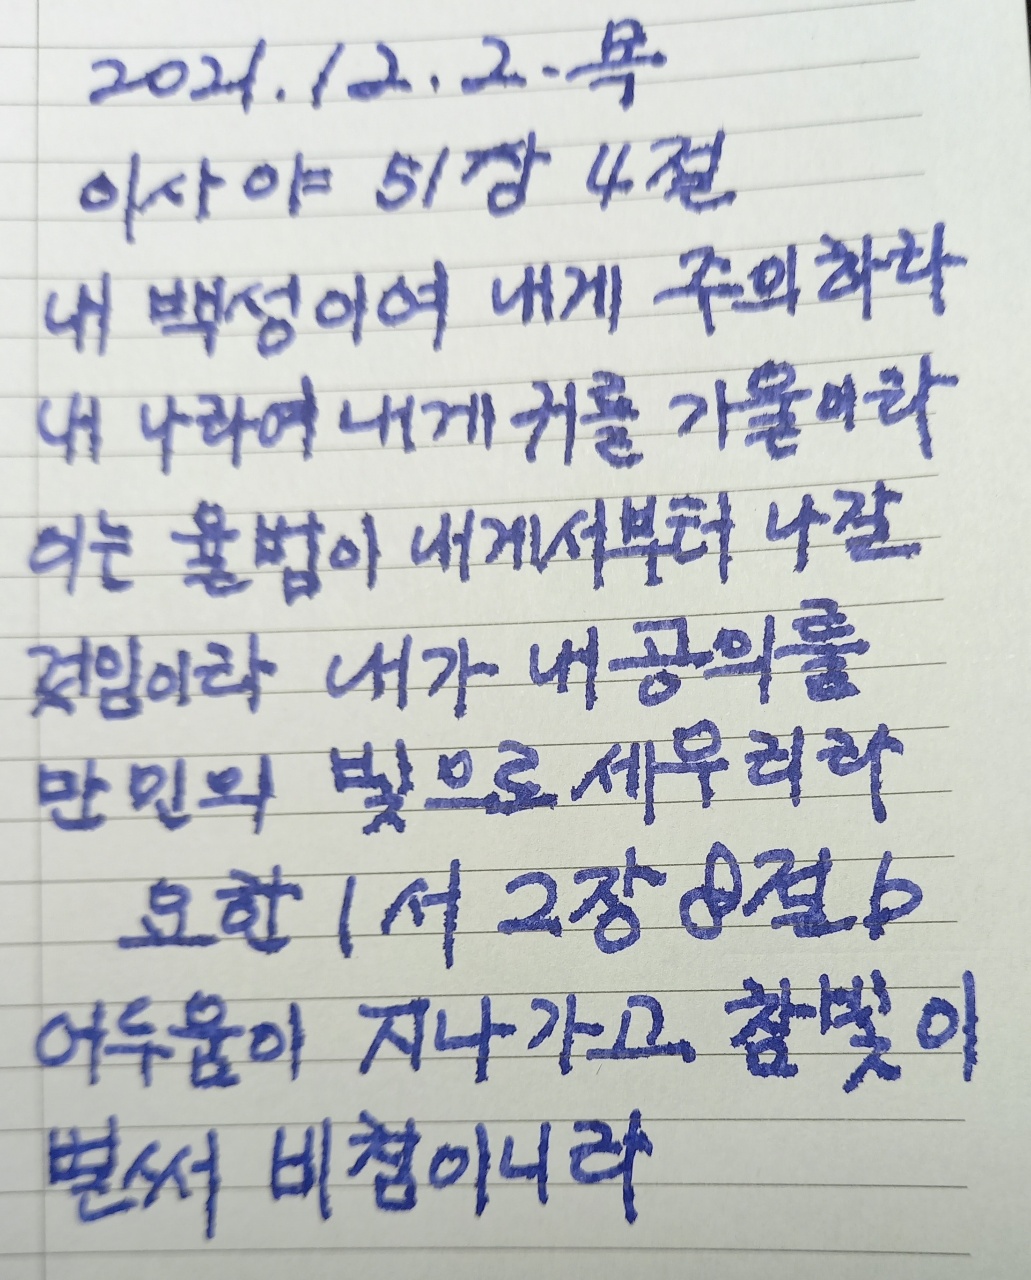 2021.12.2.목
이사야 51장 4절
내 백성이여 내게 주의하라
내 나라여 내게 귀를 기울이라
이는 율법이 내게서부터 나갈
것임이라 내가 내 공의를
만민의 빛으로 세우리라
요한1서 2장 8절 b
어두움이 지나가고 참빛이
벌써 비췸이니라